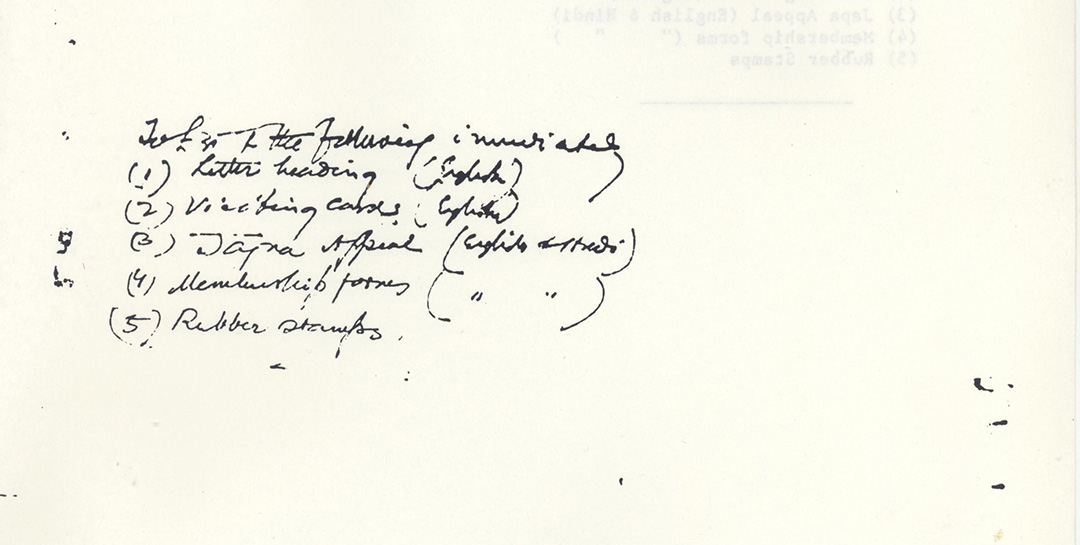 (3) Japa Appeal (English & Hindi)
(4) Membership forms (" " )
(5) Rubber Stamps
the following immediately
(1) Letter heading (English)
(2) Visiting cards (English)
(3) Appeal (English & Hindi)
(4) Membership forms ( " " )
(5) Rubber stamps.